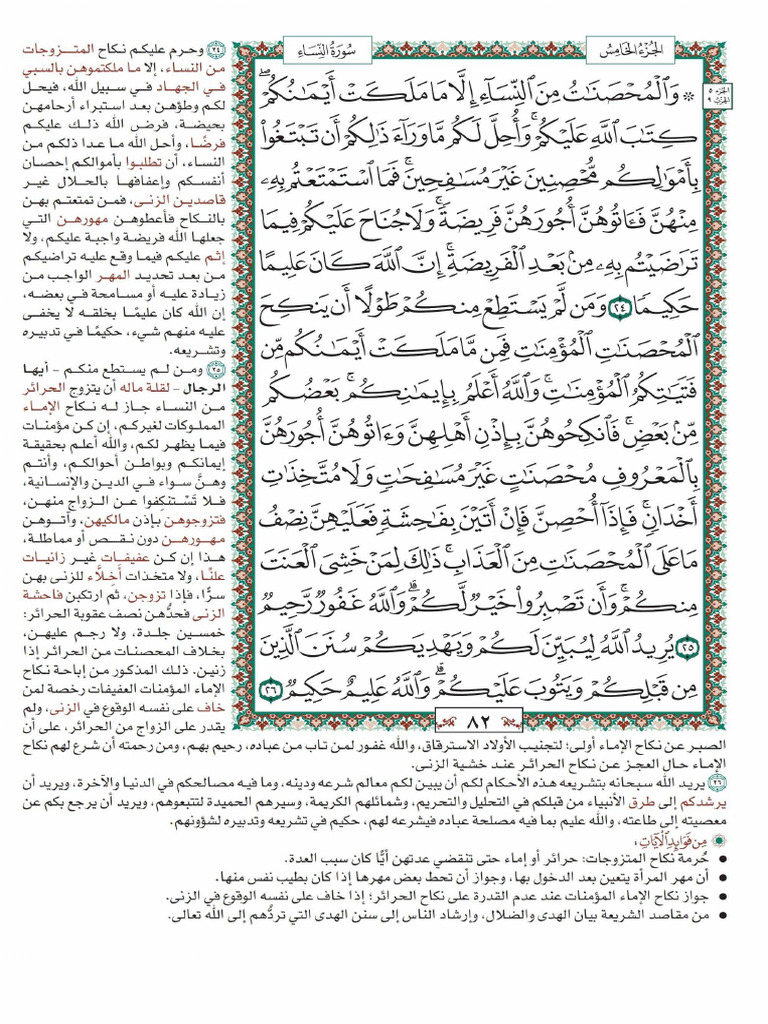 الجُزْءُ الخَامِسُ
سُورَةُ النِّسَاءِ
الجزء ٥
الحزب ٩
۞ وَٱلۡمُحۡصَنَٰتُ مِنَ ٱلنِّسَآءِ إِلَّا مَا مَلَكَتۡ أَيۡمَٰنُكُمۡۖ
كِتَٰبَ ٱللَّهِ عَلَيۡكُمۡۚ وَأُحِلَّ لَكُم مَّا وَرَآءَ ذَٰلِكُمۡ أَن تَبۡتَغُواْ
بِأَمۡوَٰلِكُم مُّحۡصِنِينَ غَيۡرَ مُسَٰفِحِينَۚ فَمَا ٱسۡتَمۡتَعۡتُم بِهِۦ
مِنۡهُنَّ فَـَٔاتُوهُنَّ أُجُورَهُنَّ فَرِيضَةٗۚ وَلَا جُنَاحَ عَلَيۡكُمۡ فِيمَا
تَرَٰضَيۡتُم بِهِۦ مِنۢ بَعۡدِ ٱلۡفَرِيضَةِۚ إِنَّ ٱللَّهَ كَانَ عَلِيمًا
حَكِيمٗا ٢٤ وَمَن لَّمۡ يَسۡتَطِعۡ مِنكُمۡ طَوۡلًا أَن يَنكِحَ
ٱلۡمُحۡصَنَٰتِ ٱلۡمُؤۡمِنَٰتِ فَمِن مَّا مَلَكَتۡ أَيۡمَٰنُكُم مِّن
فَتَيَٰتِكُمُ ٱلۡمُؤۡمِنَٰتِۚ وَٱللَّهُ أَعۡلَمُ بِإِيمَٰنِكُمۚ بَعۡضُكُم
مِّنۢ بَعۡضٖۚ فَٱنكِحُوهُنَّ بِإِذۡنِ أَهۡلِهِنَّ وَءَاتُوهُنَّ أُجُورَهُنَّ
بِٱلۡمَعۡرُوفِ مُحۡصَنَٰتٍ غَيۡرَ مُسَٰفِحَٰتٖ وَلَا مُتَّخِذَٰتِ
أَخۡدَانٖۚ فَإِذَآ أُحۡصِنَّ فَإِنۡ أَتَيۡنَ بِفَٰحِشَةٖ فَعَلَيۡهِنَّ نِصۡفُ
مَا عَلَى ٱلۡمُحۡصَنَٰتِ مِنَ ٱلۡعَذَابِۚ ذَٰلِكَ لِمَنۡ خَشِيَ ٱلۡعَنَتَ
مِنكُمۡۚ وَأَن تَصۡبِرُواْ خَيۡرٞ لَّكُمۡۗ وَٱللَّهُ غَفُورٞ رَّحِيمٞ
٢٥ يُرِيدُ ٱللَّهُ لِيُبَيِّنَ لَكُمۡ وَيَهۡدِيَكُمۡ سُنَنَ ٱلَّذِينَ
مِن قَبۡلِكُمۡ وَيَتُوبَ عَلَيۡكُمۡۗ وَٱللَّهُ عَلِيمٌ حَكِيمٞ ٢٦
٨٢
٢٤ وحرم عليكم نكاح المتـزوجات
من النساء، إلا ما ملكتموهن بالسبي
في الجهاد في سبيل الله، فيحل
لكم وطؤهن بعد استبراء أرحامهن
بحيضة، فرض الله ذلك عليكم
فرضًا، وأحل الله ما عدا ذلكم من
النساء، أن تطلبوا بأموالكم إحصان
أنفسكم وإعفافها بالحلال غير
قاصدين الزنى، فمن تمتعتم بهن
بالنكاح فأعطوهن مهورهن التي
جعلها الله فريضة واجبة عليكم، ولا
إثم عليكم فيما وقع عليه تراضيكم
من بعد تحديد المهر الواجب من
زيادة عليه أو مسامحة في بعضه،
إن الله كان عليمًا بخلقه لا يخفى
عليه منهم شيء، حكيمًا في تدبيره
وتشريعه.
٢٥ ومن لم يستطع منكم - أيها
الرجال - لقلة ماله أن يتزوج الحرائر
من النساء جاز له نكاح الإماء
المملوكات لغيركم، إن كن مؤمنات
فيما يظهر لكم، والله أعلم بحقيقة
إيمانكم وبواطن أحوالكم، وأنتم
وهنَّ سواء في الدين والإنسانية،
فلا تَسْتنكِفوا عن الزواج منهن،
فتزوجوهن بإذن مالكيهن، وآتوهن
مهورهن دون نقص أو مماطلة،
هذا إن كن عفيفات غير زانيات
علنًا، ولا متخذات أخلَّاء للزنى بهن
سرًّا، فإذا تزوجن، ثم ارتكبن فاحشة
الزنى فحدُّهن نصف عقوبة الحرائر:
خمسين جلدة، ولا رجم عليهن،
بخلاف المحصنات من الحرائر إذا
زنين. ذلك المذكور من إباحة نكاح
الإماء المؤمنات العفيفات رخصة لمن
خاف على نفسه الوقوع في الزنى، ولم
يقدر على الزواج من الحرائر، على أن
الصبر عن نكاح الإماء أولى؛ لتجنيب الأولاد الاسترقاق، والله غفور لمن تاب من عباده، رحيم بهم، ومن رحمته أن شرع لهم نكاح
الإماء حال العجز عن نكاح الحرائر عند خشية الزنى.
٢٦ يريد الله سبحانه بتشريعه هذه الأحكام لكم أن يبين لكم معالم شرعه ودينه، وما فيه مصالحكم في الدنيا والآخرة، ويريد أن
يرشدكم إلى طرق الأنبياء من قبلكم في التحليل والتحريم، وشمائلهم الكريمة، وسيرهم الحميدة لتتبعوهم، ويريد أن يرجع بكم عن
معصيته إلى طاعته، والله عليم بما فيه مصلحة عباده فيشرعه لهم، حكيم في تشريعه وتدبيره لشؤونهم.
مِن فَوَائِدِ الْآيَاتِ:
• حُرمة نكاح المتزوجات: حرائر أو إماء حتى تنقضي عدتهن أيًّا كان سبب العدة.
• أن مهر المرأة يتعين بعد الدخول بها، وجواز أن تحط بعض مهرها إذا كان بطيب نفس منها.
• جواز نكاح الإماء المؤمنات عند عدم القدرة على نكاح الحرائر؛ إذا خاف على نفسه الوقوع في الزنى.
• من مقاصد الشريعة بيان الهدى والضلال، وإرشاد الناس إلى سنن الهدى التي تردُّهم إلى الله تعالى.